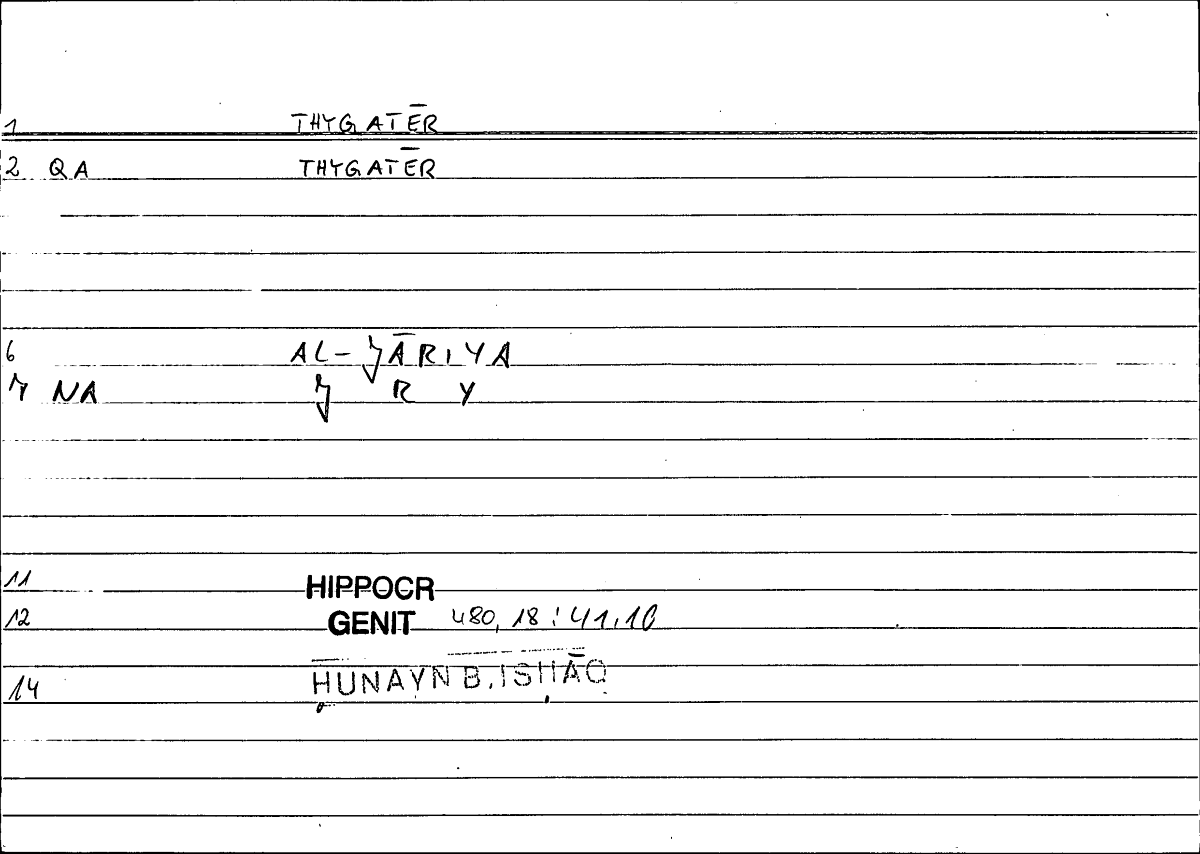 1 THYGATĒR
2 QA THYGATĒR
6 AL-ǧĀRIYA
7 NA ǧ R Y
11 HIPPOCR
12 GENIT 480,18 : 41,10
14 ḤUNAYN B. ISḤĀQ